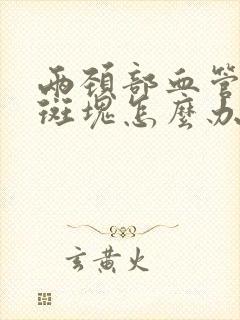 兩頚部血管
斑塊怎麼办
玄黄火